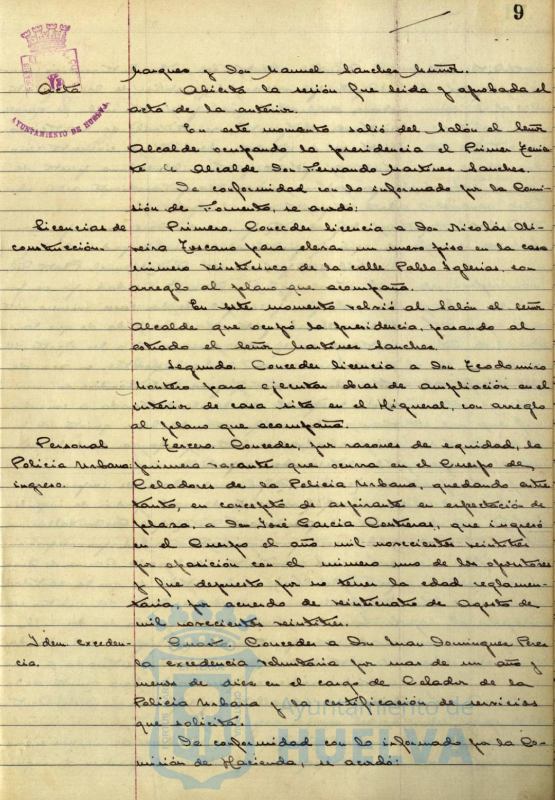 9
Marques y Don Manuel Sanchez Muñoz.
Acta
Abierta la sesión fue leida y aprobada el
acta de la anterior.
AYUNTAMIENTO DE HUELVA
En este momento salió del Salón el Señor
Alcalde ocupando la presidencia el Primer Tenien
te de Alcalde Don Fernando Martinez Sanchez.
De conformidad con lo informado por la Comi-
sión de Fomento, se acordó:
Licencias de
construcción.
Primero. Conceder licencia a Don Nicolás Oli-
veira Toscano para elevar un nuevo piso en la casa
número veinticinco de la calle Pablo Iglesias, con
arreglo al plano que acompaña.
En este momento volvió al Salón el Señor
Alcalde que ocupó la presidencia, pasando al
estrado el Señor Martinez Sanchez.
Segundo. Conceder licencia a Don Teodomiro
Montero para ejecutar obras de ampliación en el
interior de casa sita en el Higueral, con arreglo
al plano que acompaña.
Personal
Policia Urbana
ingreso.
Tercero. Conceder, por razones de equidad, la
primera vacante que ocurra en el Cuerpo de
Celadores de la Policia Urbana, quedando entre
tanto, en concepto de aspirante en expectación de
plaza, a Don José Garcia Contreras, que ingresó
en el Cuerpo el año mil novecientos veintitrés
por oposición con el número uno de los opositores
y fue depuesto por no tener la edad reglamen-
taria por acuerdo de veinticuatro de Agosto de
mil novecientos veintitrés.
Idem exceden-
cia.
Cuarto. Conceder a Don Juan Dominguez Perez
la excedencia voluntaria por mas de un año y
menos de diez en el cargo de Celador de la
Policia Urbana y la certificación de servicios
que solicita.
De conformidad con lo informado por la Co-
misión de Hacienda, se acordó:
Ayuntamiento de
HUELVA